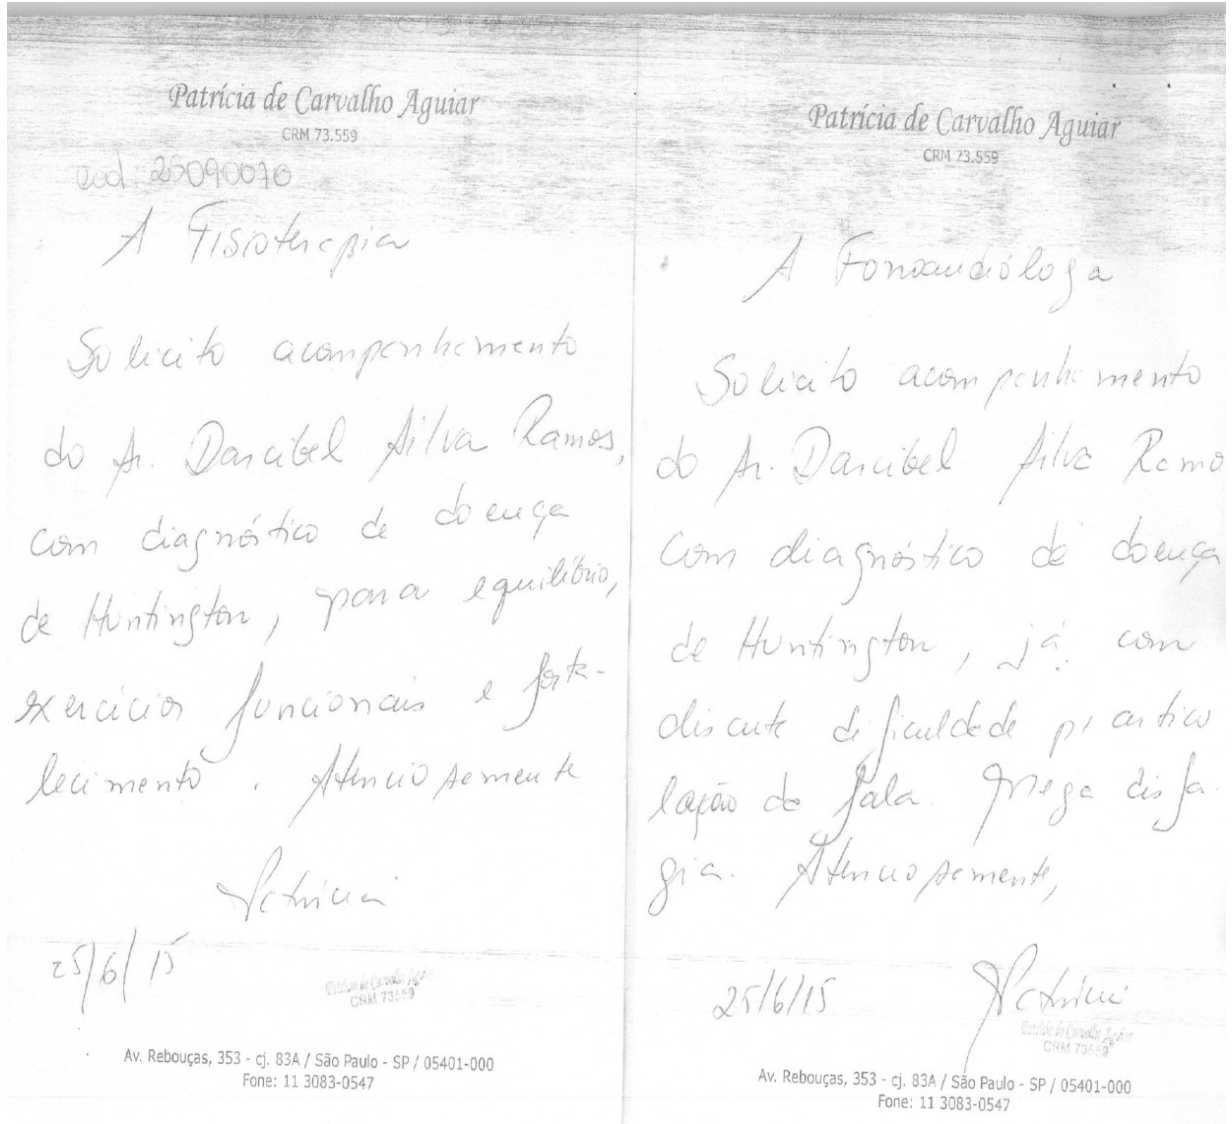 Patrícia de Carvalho Aguiar
CRM 73.559
cod: 25090070
A Fisioterapia
Solicito acompanhamento
do Sr. Darcibel Silva Ramos,
com diagnóstico de doença
de Huntington, para equilíbrio,
exercícios funcionais e forta-
lecimento. Atenciosamente
Patricia
25/6/15
Patrícia de Carvalho Aguiar
CRM 73559
Av. Rebouças, 353 - cj. 83A / São Paulo - SP / 05401-000
Fone: 11 3083-0547
Patrícia de Carvalho Aguiar
CRM 73.559
A Fonoaudióloga
Solicito acompanhamento
do Sr. Darcibel Silva Ramo
com diagnóstico de doença
de Huntington, já com
discute dificuldade p/ articu
lação da fala. Nega disfa-
gia. Atenciosamente,
25/6/15
Patricia
Patrícia de Carvalho Aguiar
CRM 73559
Av. Rebouças, 353 - cj. 83A / São Paulo - SP / 05401-000
Fone: 11 3083-0547